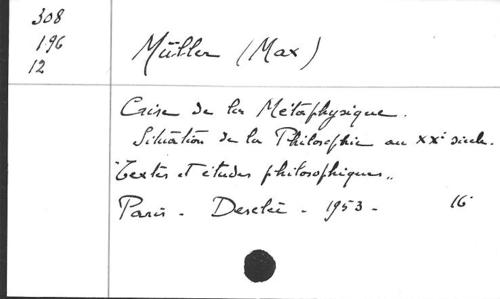 308
196
12
Müller (Max)
Crise de la Métaphysique.
Situation de la Philosophie au XXe siècle.
"Textes et études philosophiques"
Paris - Desclée - 1953 - 16